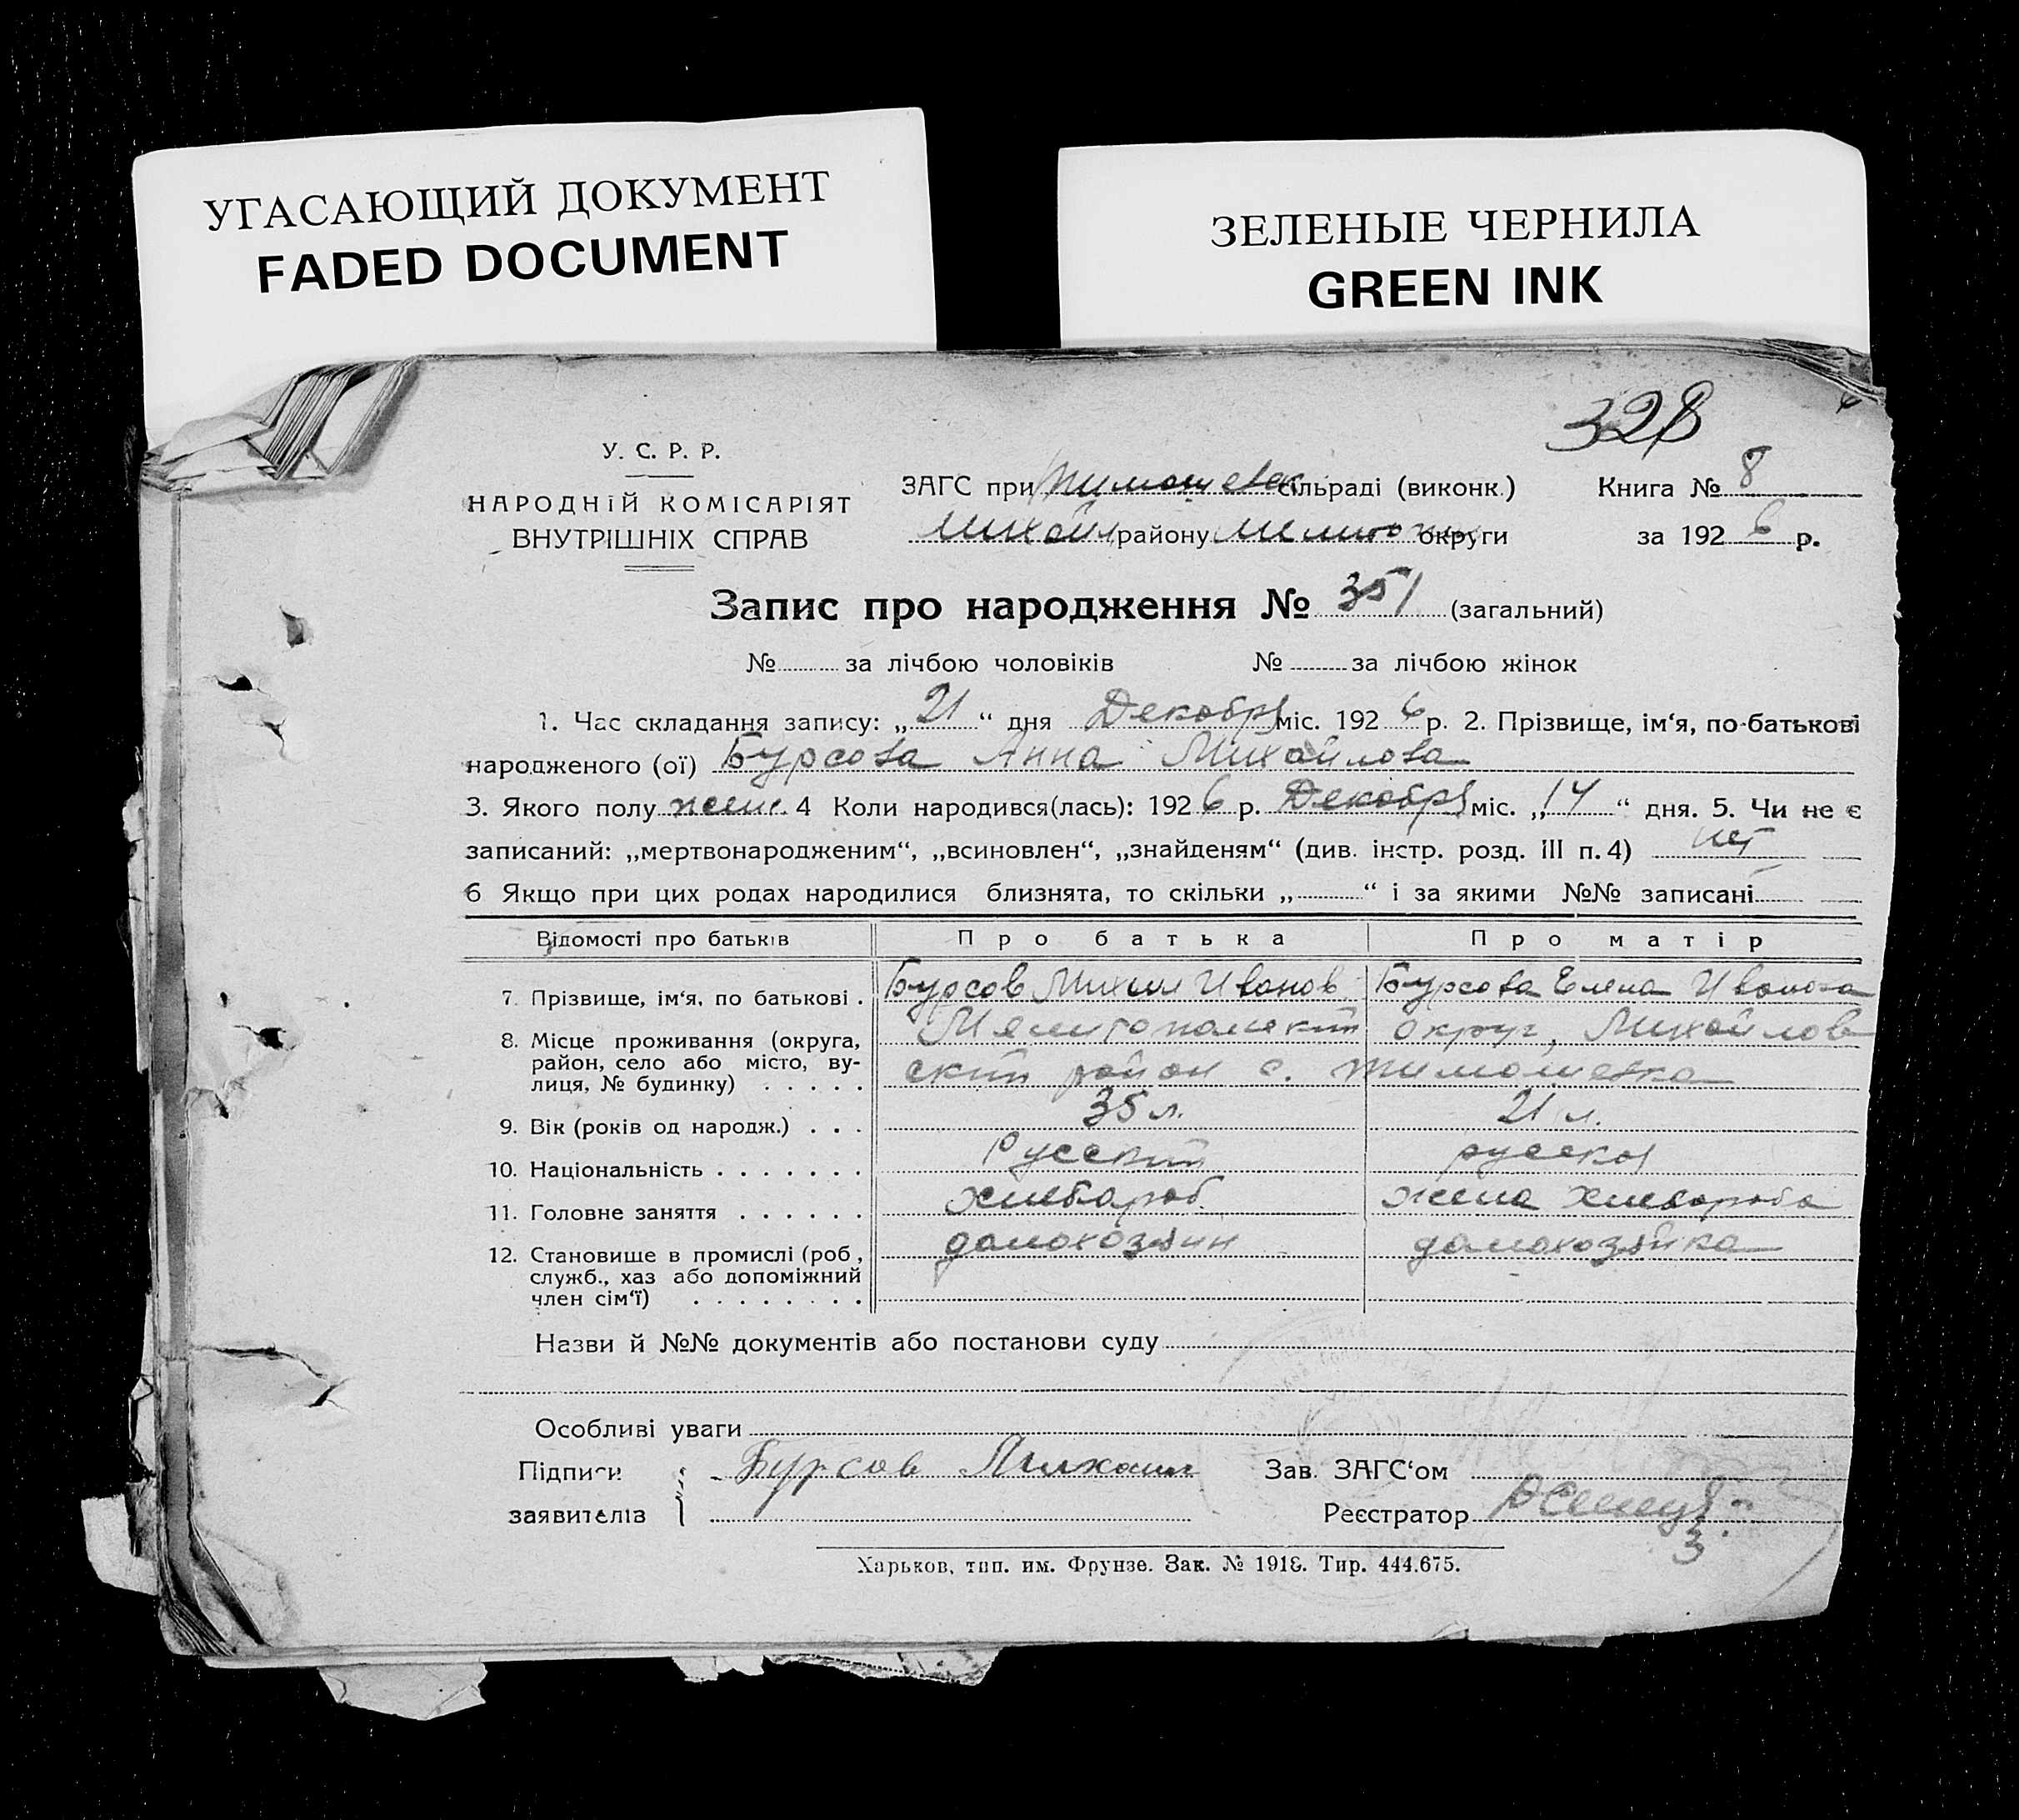 УГАСАЮЩИЙ ДОКУМЕНТ
FADED DOCUMENT
ЗЕЛЕНЫЕ ЧЕРНИЛА
GREEN INK
328
У. С. Р. Р.
НАРОДНІЙ КОМІСАРІЯТ
ВНУТРІШНІХ СПРАВ
ЗАГС при Тимошевск сільраді (виконк.)
Михайл району Мелитоп округи
Книга № 8
за 1926 р.
Запис про народження № 351 (загальний)
№ за лічбою чоловіків № за лічбою жінок
1. Час складання запису: „21“ дня Декобря міс. 1926 р. 2. Прізвище, ім‘я, по-батькові
народженого (ої) Бурсова Анна Михайлова
3. Якого полу женс. 4 Коли народився(лась): 1926 р. Декобря міс. „14“ дня. 5. Чи не є
записаний: „мертвонародженим“, „всиновлен“, „знайденям“ (див. інстр. розд. III п. 4) нет
6 Якщо при цих родах народилися близнята, то скільки „ “ і за якими №№ записані
Відомості про батьків Про батька Про матір
7. Прізвище, ім‘я, по батькові . Бурсов Михаил Иванов Бурсова Елена Иванова
8. Місце проживання (округа, Мелитопольский округ, Михайлов
район, село або місто, ву-
лиця, № будинку) . . . . . ский район с. Тимошевка
9. Вік (років од народж.) . . . 35 л. 21 л.
10. Національність . . . . . . . Русский русская
11. Головне заняття . . . . . . хлебароб. жена хлебороба
12. Становище в промислі (роб., домохозяин домохозяйка
служб., хаз або допоміжний
член сім‘ї) . . . . . . . .
Назви й №№ документів або постанови суду
Особливі уваги
Підписи Бурсов Михаил Зав. ЗАГС‘ом
заявителів Реєстратор
Харьков, тип. им. Фрунзе. Зак. № 1918. Тир. 444.675.